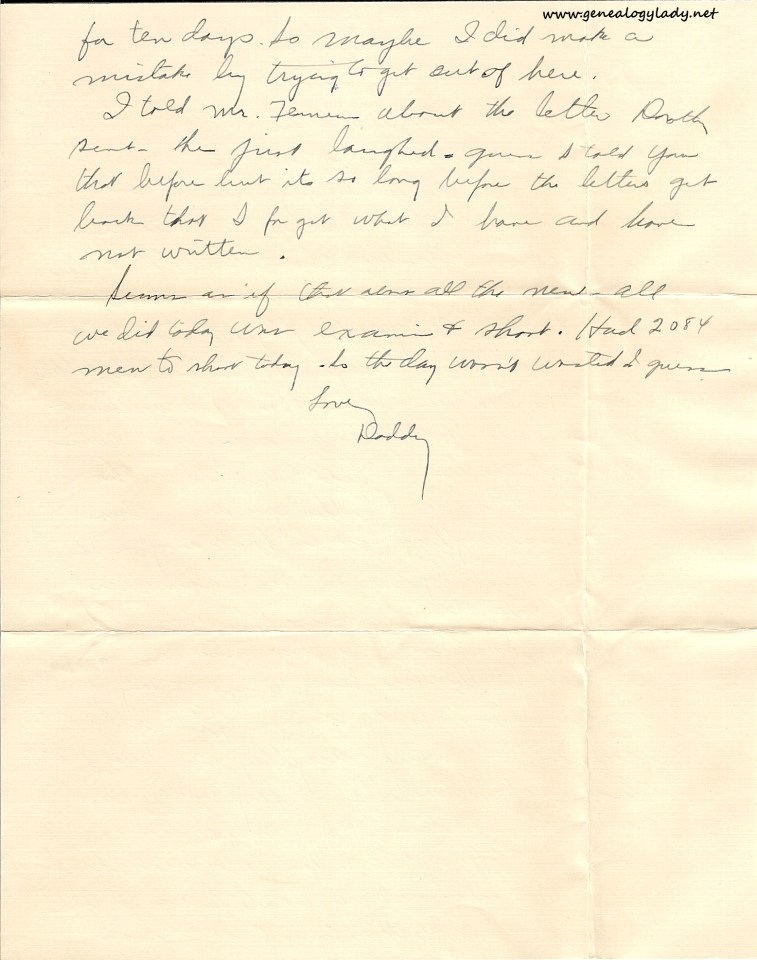 www.genealogylady.net
for ten days. So maybe I did make a
mistake by trying to get out of here.
I told Mr. about the letter
sent - he just laughed - guess I told you
that before but its so long before the letters get
back that I forget what I have and have
not written.
Seems as if that was all the news - all
we did today was examine & shoot. Had 2084
men to shoot today. So the day wasn't wasted I guess
Love
Daddy